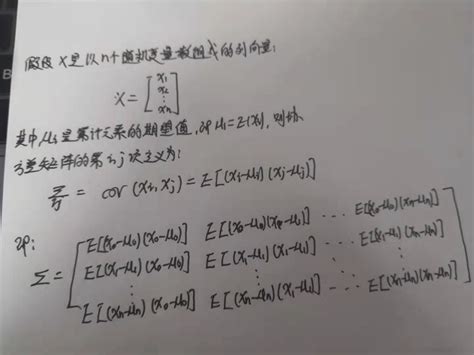 假设X是以n个随机变量数组成的列向量:
X = [x₁ x₂ ⋮ xₙ]
其中,μᵢ是第i个元素的期望值,即μᵢ=E(xᵢ),则协
方差矩阵的第i,j项定义为:
Σᵢⱼ = cov(xᵢ,xⱼ) = E[(xᵢ-μᵢ)(xⱼ-μⱼ)]
即:
E[(x₀-μ₀)(x₀-μ₀)] E[(x₀-μ₀)(x₁-μ₁)] ... E[(x₀-μ₀)(xₙ-μₙ)]
Σ = E[(x₁-μ₁)(x₀-μ₀)] E[(x₁-μ₁)(x₁-μ₁)] ... E[(x₁-μ₁)(xₙ-μₙ)]
⋮ ⋮ ⋮
E[(xₙ-μₙ)(x₀-μ₀)] E[(xₙ-μₙ)(x₁-μ₁)] ... E[(xₙ-μₙ)(xₙ-μₙ)]